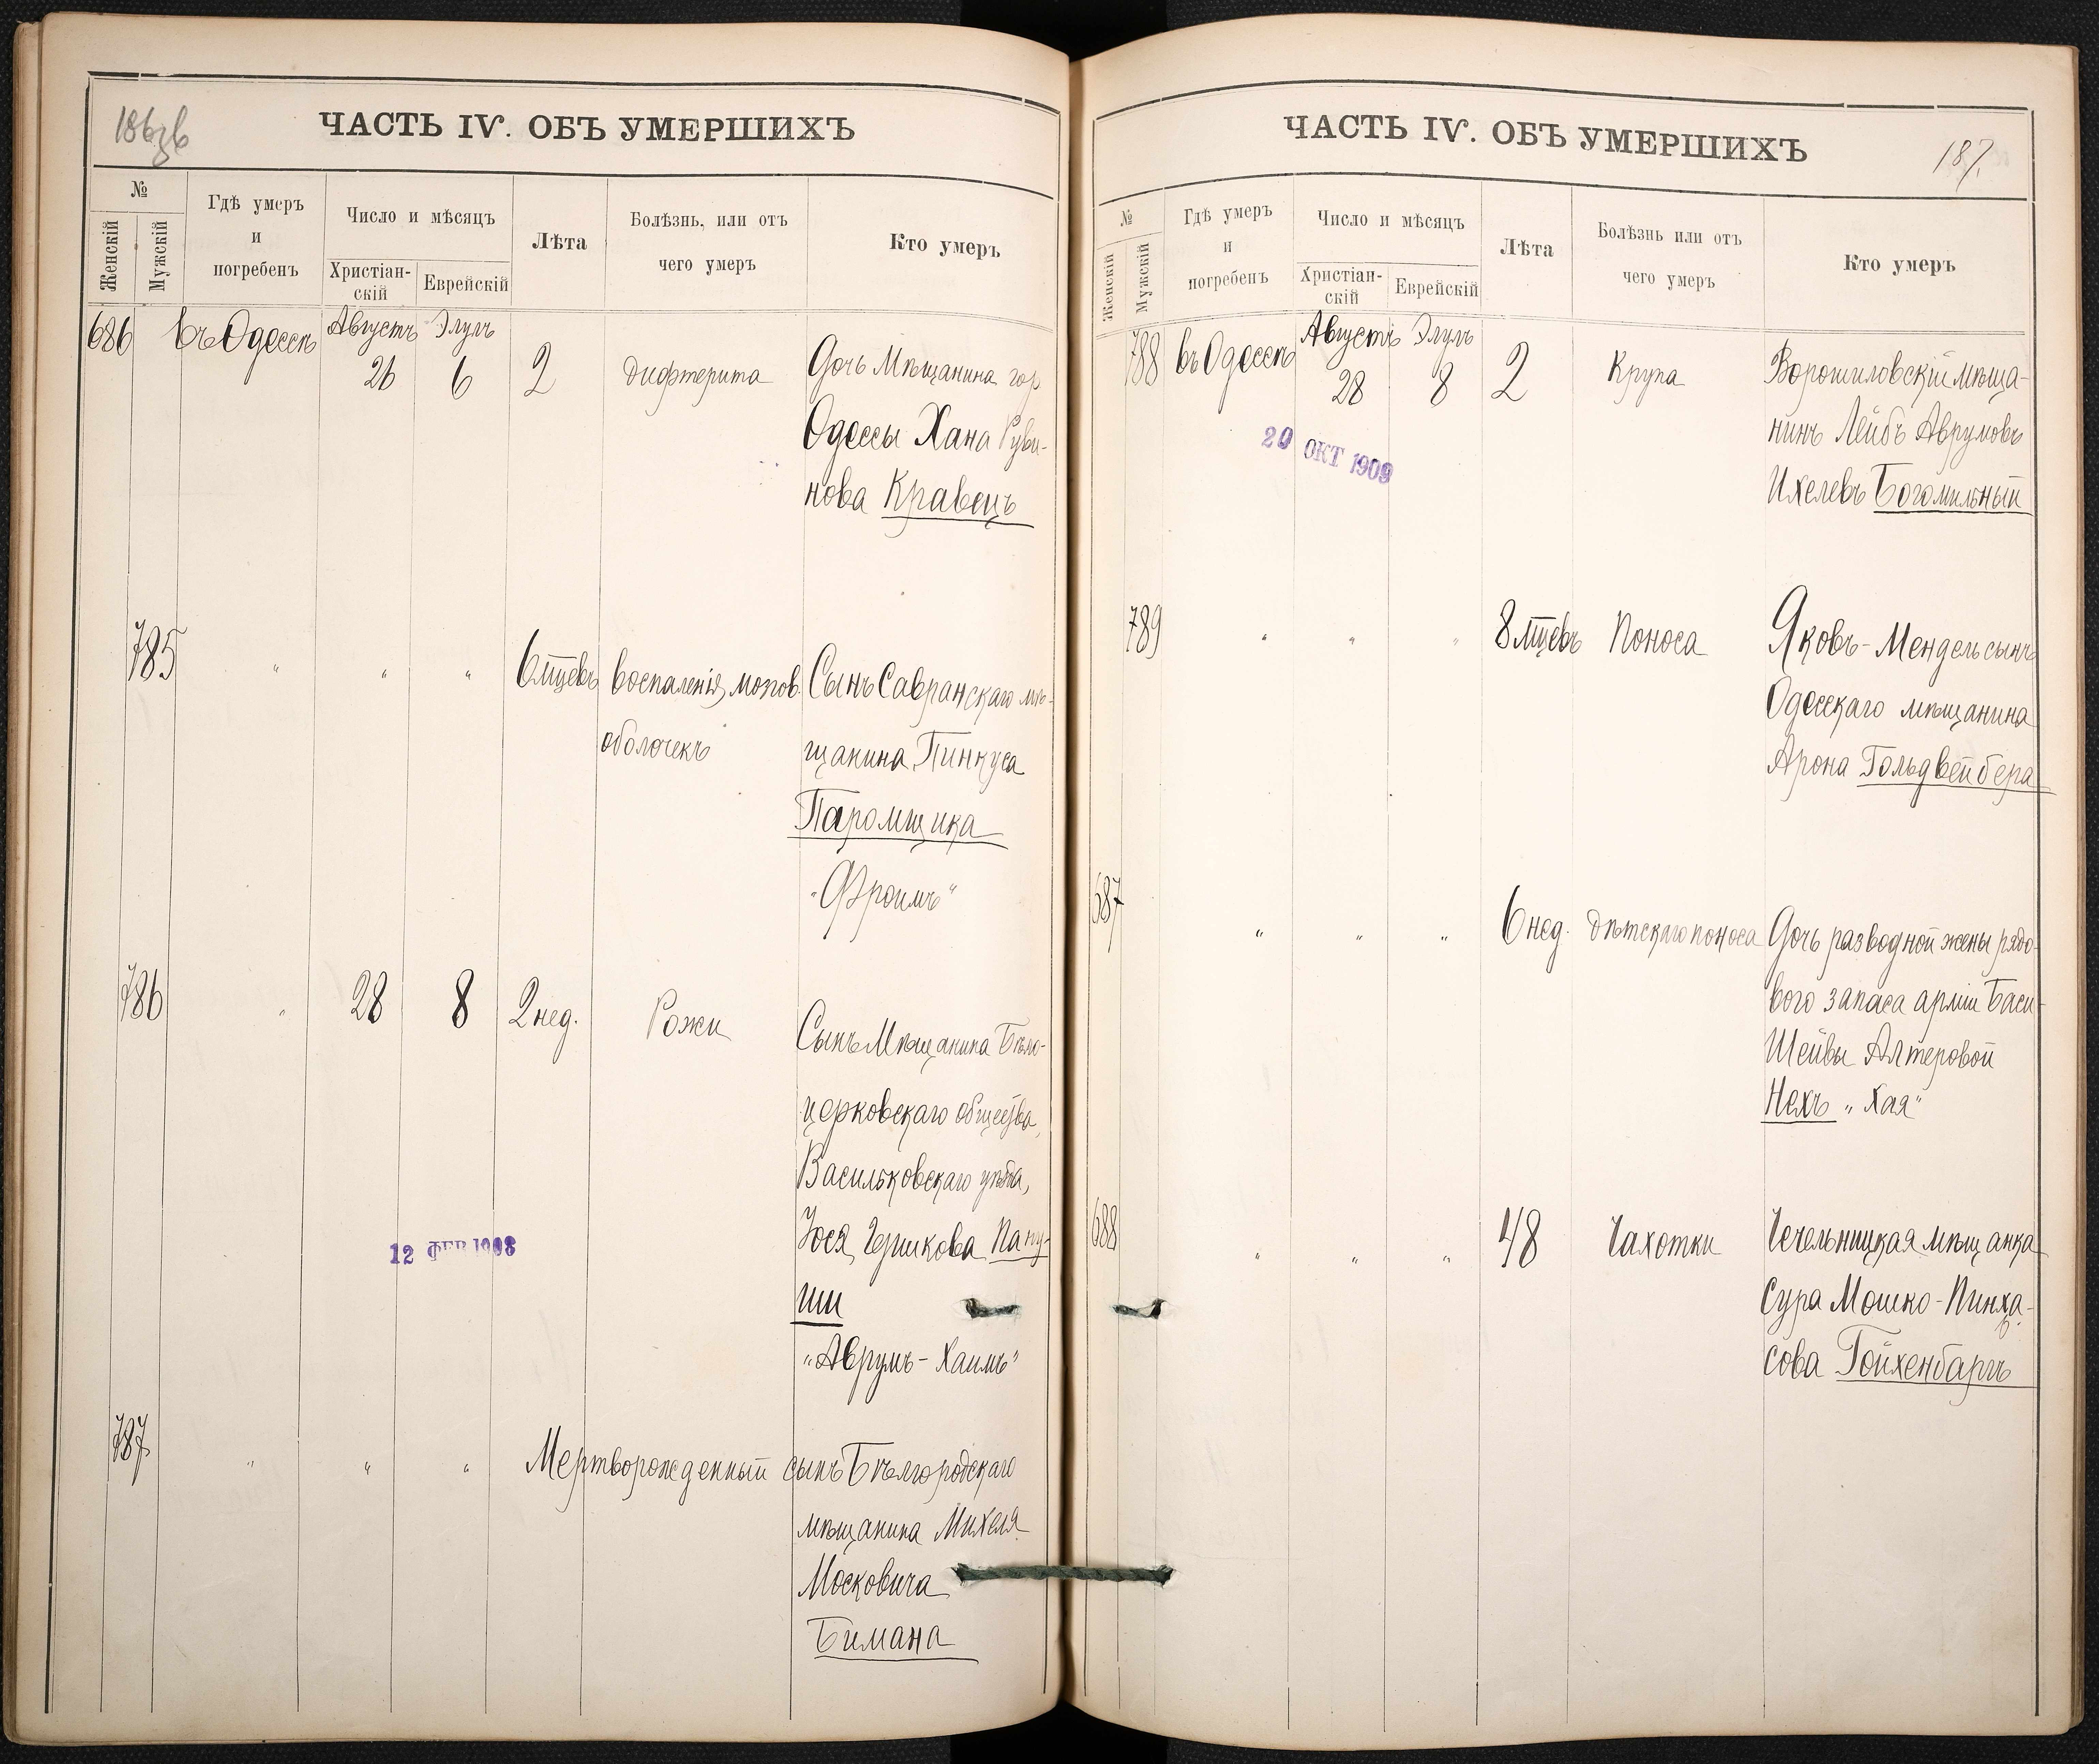 186 зв
ЧАСТЬ IV. ОБЪ УМЕРШИХЪ
№
Женскій
Мужскій
Гдѣ умеръ
и
погребенъ
Число и мѣсяцъ
Христіан-
скій
Еврейскій
Лѣта
Болѣзнь, или отъ
чего умеръ
Кто умеръ
686 въ Одессѣ Августъ Элулъ
26 6 2 дифтерита Дочь Мѣщанина гор
Одессы Хана Руви-
нова Кравецъ
785 " " " 6 мцевъ воспаленія мозгов. Сынъ Савранскаго мѣ-
оболочекъ щанина Пинкуса
Паромщика
"Фроимъ"
786 " 28 8 2 нед. Рожи Сынъ Мѣщанина Бѣло-
церковскаго общества,
Васильковскаго уѣзда,
Зося Гершкова Пану-
ши
12 ФЕВ 1908
"Аврумъ-Хаимъ"
787 " " " Мертворожденный сынъ Бѣлгородскаго
мѣщанина Михеля
Московича
Бимана
ЧАСТЬ IV. ОБЪ УМЕРШИХЪ
187.
№
Женскій
Мужскій
Гдѣ умеръ
и
погребенъ
Число и мѣсяцъ
Христіан-
скій
Еврейскій
Лѣта
Болѣзнь или отъ
чего умеръ
Кто умеръ
788 въ Одессѣ Августъ Элулъ
28 8 2 Крупа Ворошиловскій мѣща-
нинъ Лейбъ Аврумовъ
Ихелевъ Богомильный
20 ОКТ 1909
789 " " " 8 мцевъ Поноса Яковъ-Мендель сынъ
Одесскаго мѣщанина
Арона Гольдвейбера
687 " " " 6 нед. дѣтскаго поноса Дочь разводной жены рядо-
вого запаса арміи Баси-
Шейвы Алтеровой
Нехъ "Хая"
688 " " " 48 Чахотки Чечельницкая мѣщанка
Сура Мошко-Пинха-
сова Гойхенбаргъ